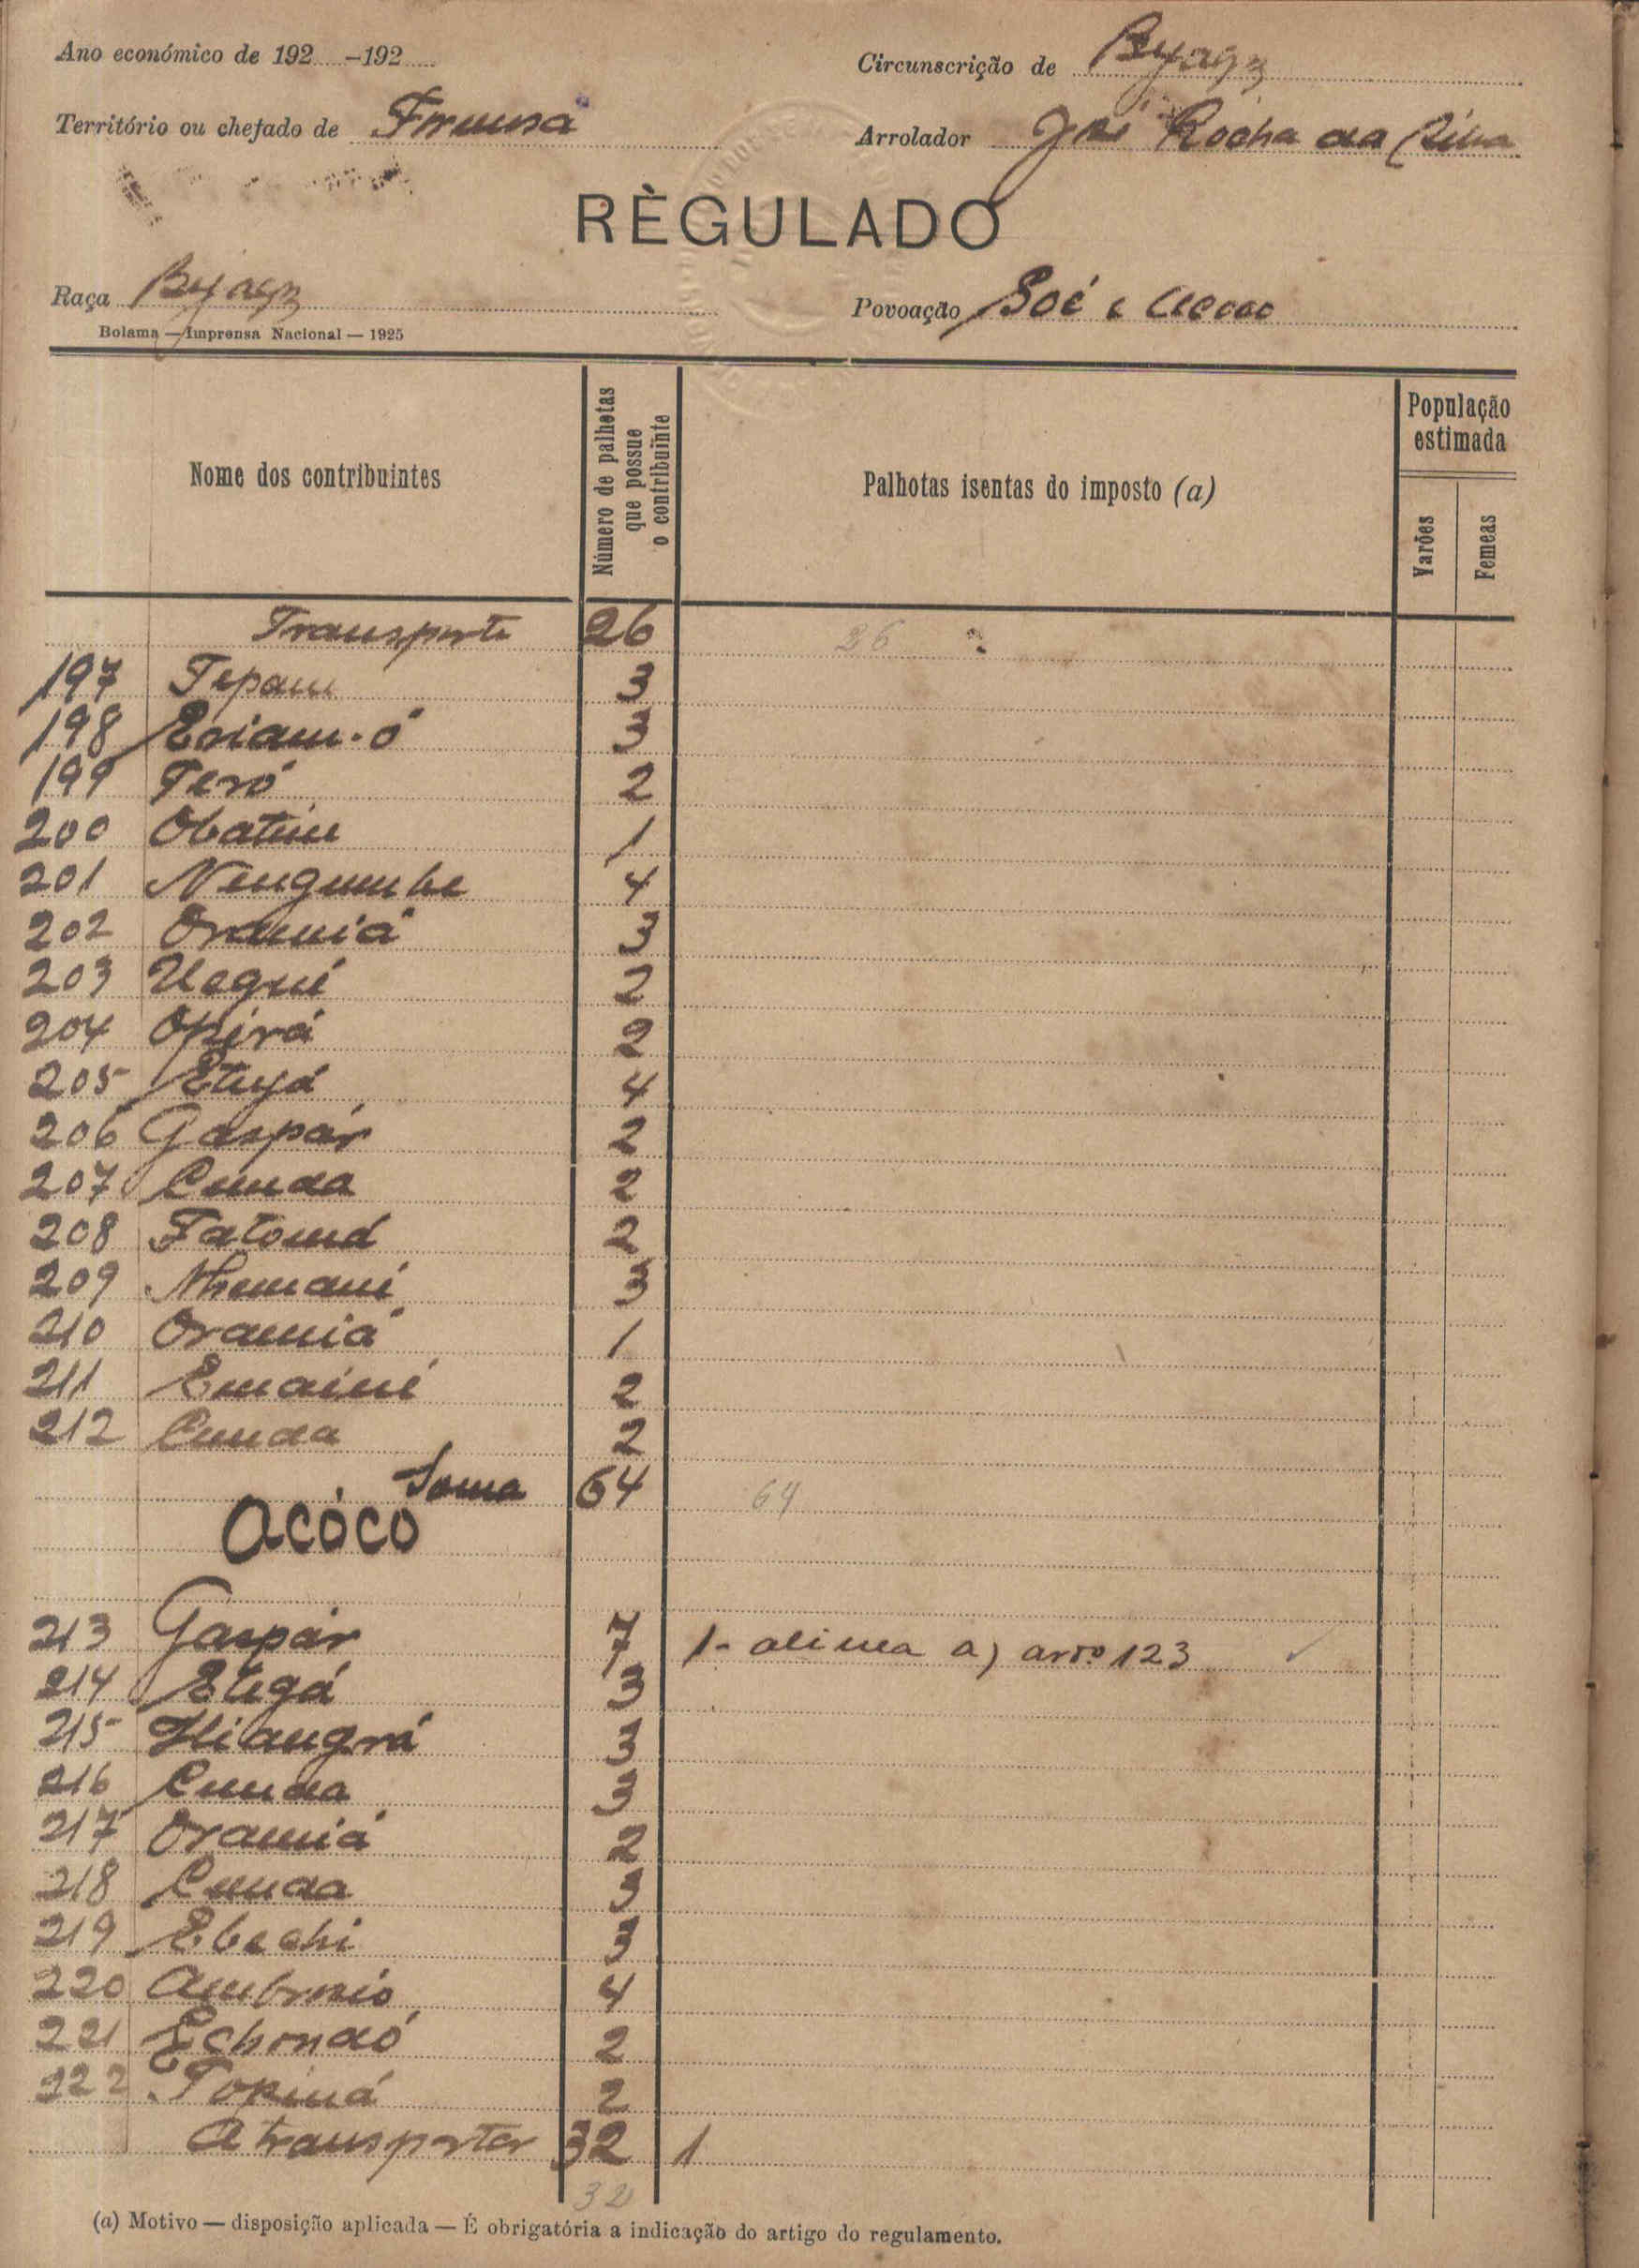 Ano económico de 192 -192
Circunscrição de Byagz
Território ou chefado de
Arrolador José Rocha da Silva
RÈGULADO
Raça Byagz
Povoação Soé e Acoco
Bolama — Imprensa Nacional — 1925
Nome dos contribuintes
Número de palhotas que possue o contribuinte
Palhotas isentas do imposto (a)
População estimada
Varões
Femeas
Transporte 26 26
197 Tepam 3
198 3
199 Teró 2
200 Obatim 1
201 Nengumbe 4
202 Oramiá 3
203 Uequé 2
204 Opirá 2
205 4
206 Gaspár 2
207 Cunda 2
208 Fatomá 2
209 Nhemané 3
210 Oramiá 1
211 Emainé 2
212 Cunda 2
Soma 64 64
Acóco
213 Gaspár 7 1 - alinea a) artº 123
214 Etegá 3
215 3
216 Cunda 3
217 Oramiá 2
218 Cunda 3
219 Ebechi 3
220 Ambrosio 4
221 Echondó 2
222 Topiná 2
A transportar 32 1
32
(a) Motivo — disposição aplicada — É obrigatória a indicação do artigo do regulamento.